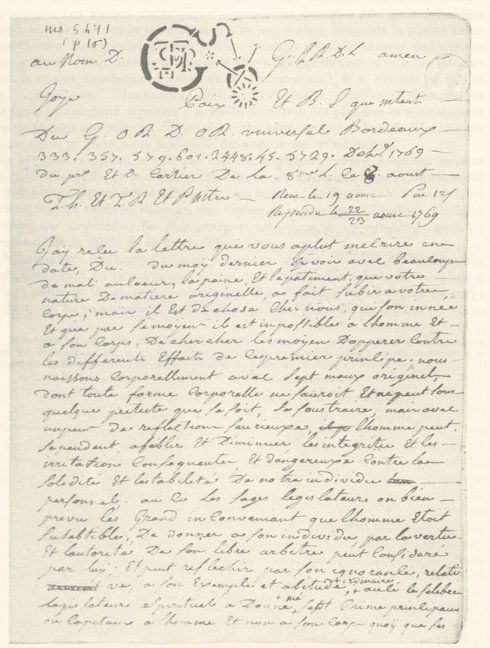 ms 5471
(p 16)
au Nom D. G. A. R. D. L. amen
Joye Paix Et B.
Du G. O R. D. O R. vniversel Bordeaux
333. 357. 579. 601. 2448. 45. 5729. 1769
du Et D. De La L. le 8 aoust
Th. Et T. R Et P. M tre Reçu le 19 aoust
Repondu le 22 23 aoust 1769
J'ay reçu la lettre que vous m'ecrire en
date, Du. du moy dernier Je voir avec beaucoup
de mal au coeur, la peine Et le patiment, que votre
nature De matiere originelle a fait subir a votre
corps; mais il Et de chose Cher nous, qui son inneé
Et que par se moyen il est impossible a l'homme Et
a son Corps, De chercher les moyen D'opperer contre
les differents Effaits de ce premier principe. nous
naissons Corporellement avec sept maux originel,
dont toute forme Corporelle ne sauroit Et ne peut sous
quelque preteste que se soit, se soustraire, mais avec
un peu de reflection l'homme peut,
se pendent afeblir Et Diminuer les integrité Et les
irritation Consequenter Et dangereuse Contre la
solidité Et De notre individu
personnel, les sages legislateurs on bien
prevu les Grand inconveniant que l'homme Etoit
De donner a son individu par la vertu
Et l'autorité De son libre arbitre peut
par lui: Et peut reflechir par son ignorance,
a son Exsemple Et abitude ordinaire,
legislateur spirituel a Donné, sept Crime principaux
ou Capitaux a l'homme Et non a son Corps quoy que ses